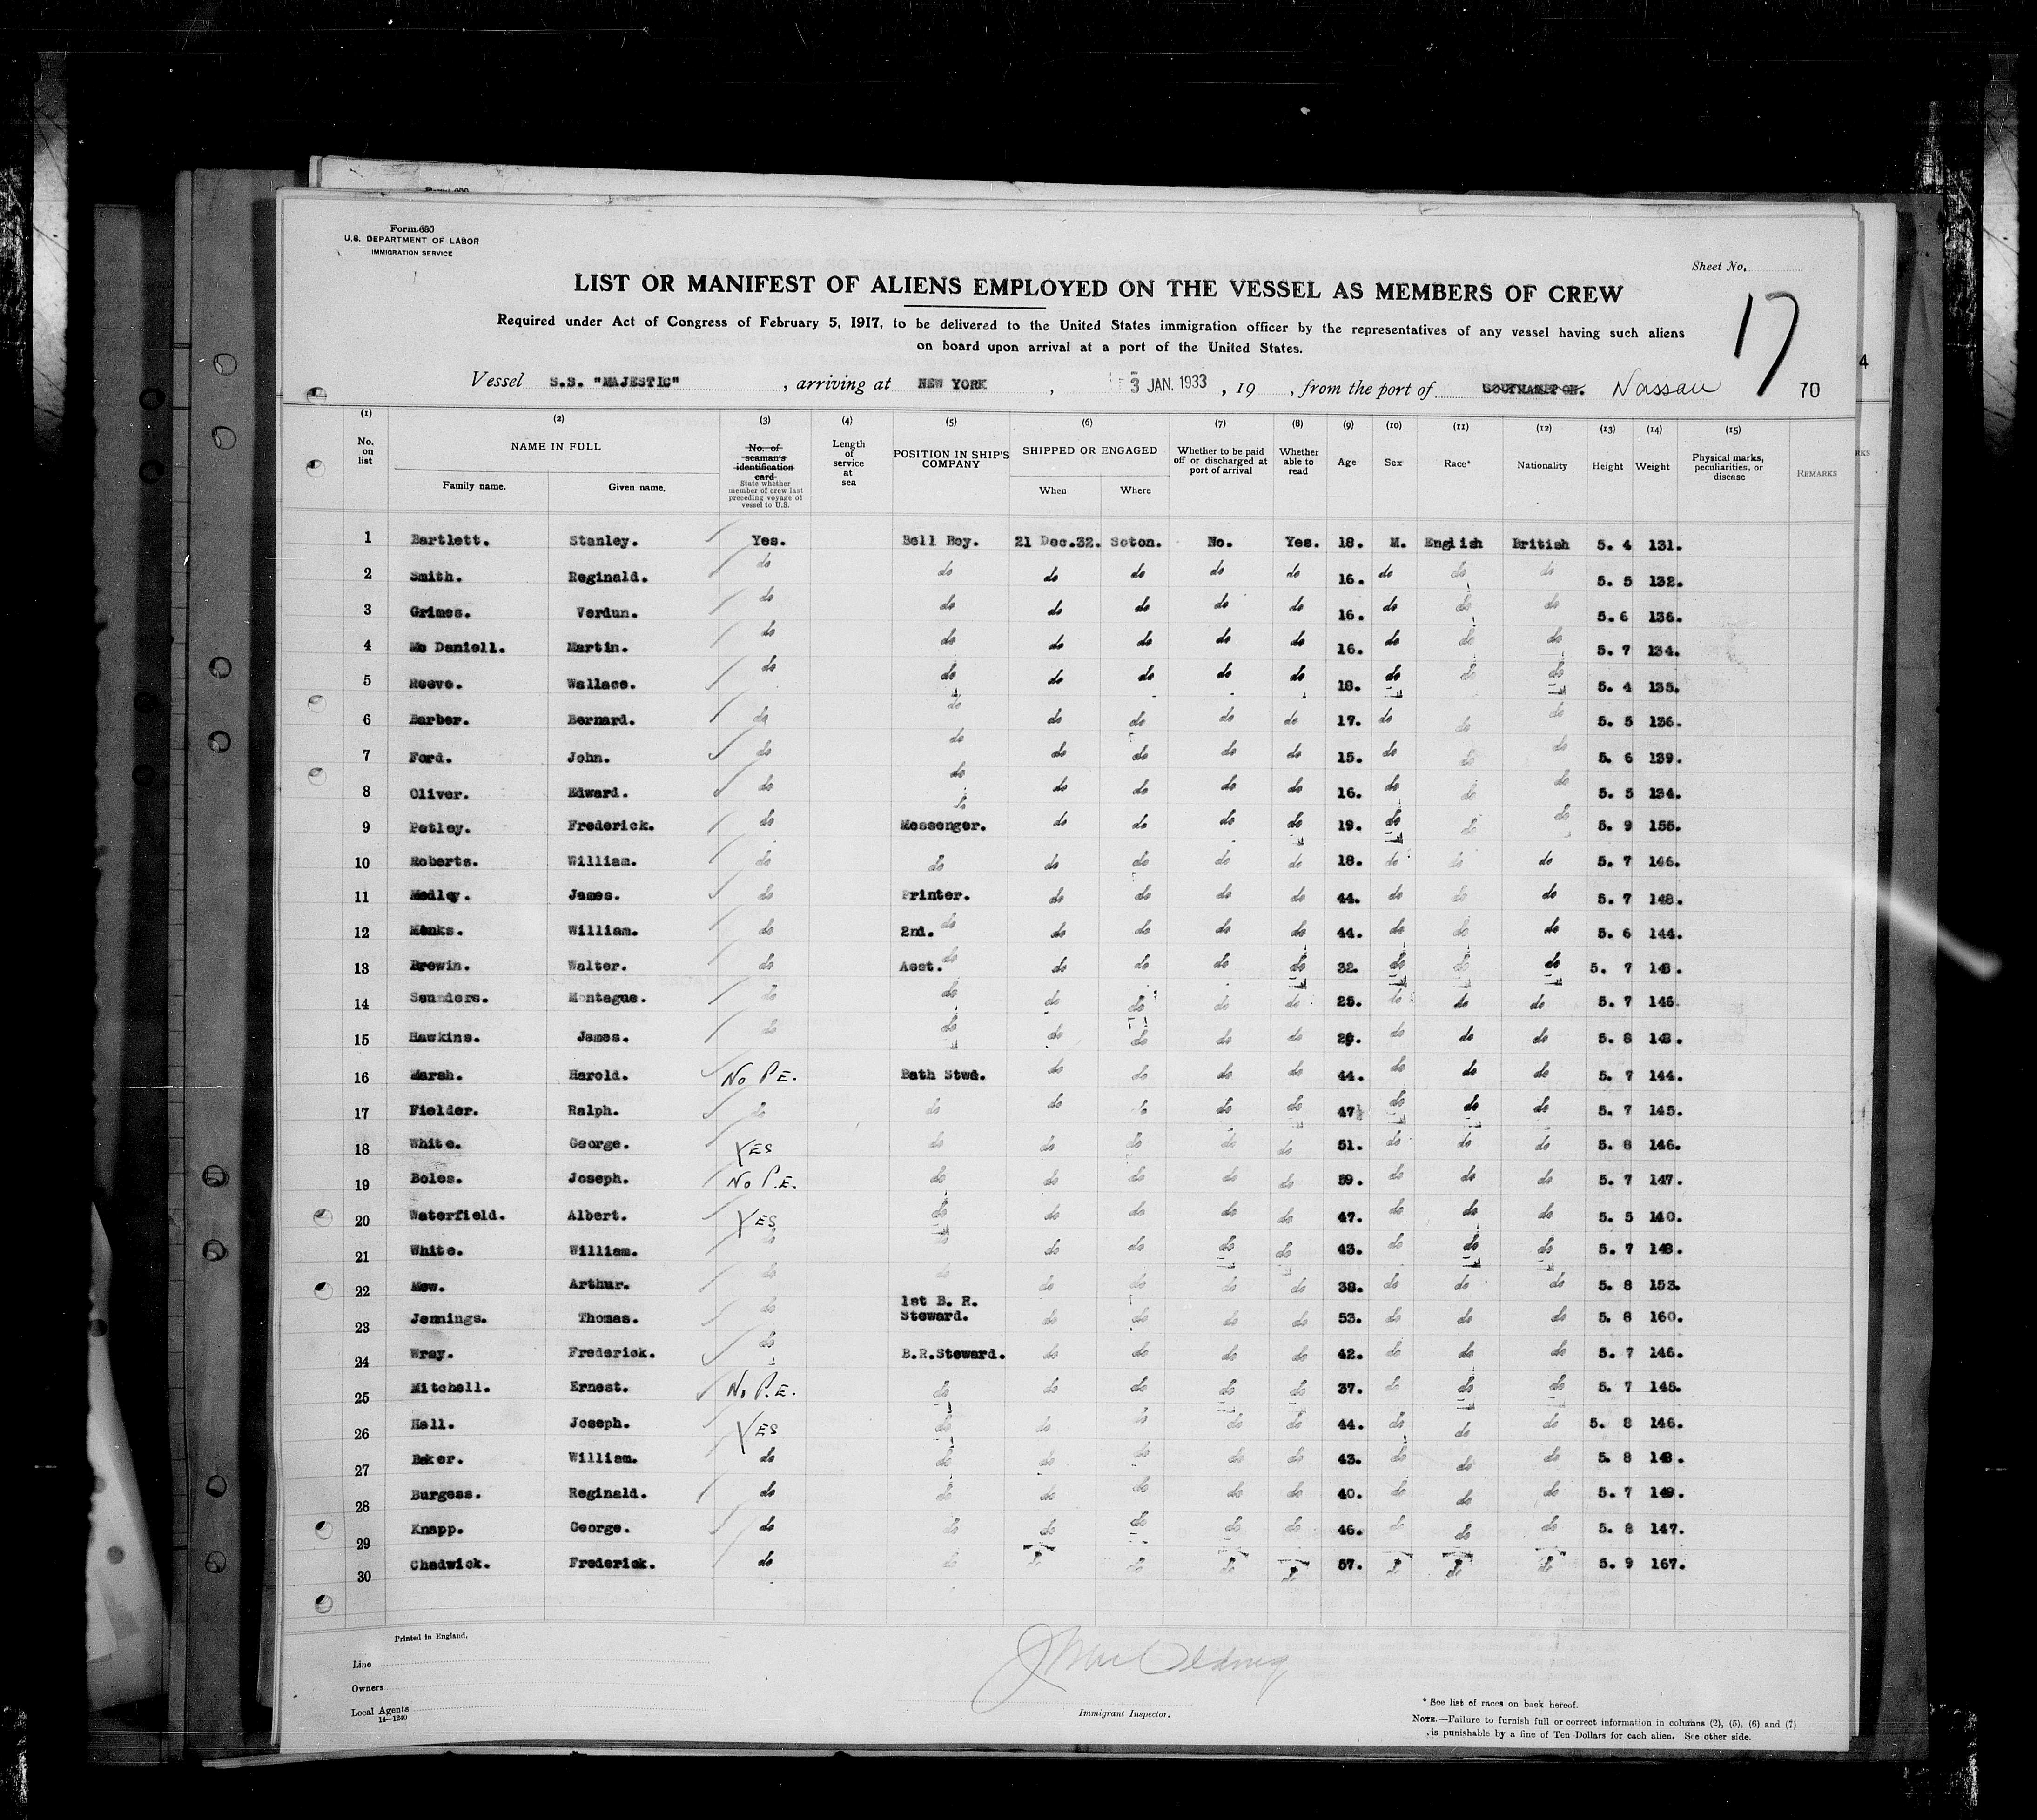 Form 680
U.S. DEPARTMENT OF LABOR
IMMIGRATION SERVICE
Sheet No.
LIST OR MANIFEST OF ALIENS EMPLOYED ON THE VESSEL AS MEMBERS OF CREW
17
Required under Act of Congress of February 5, 1917, to be delivered to the United States immigration officer by the representatives of any vessel having such aliens
on board upon arrival at a port of the United States.
4
Vessel S.S. "MAJESTIC", arriving at NEW YORK, 3 JAN. 1933, 19, from the port of SOUTHAMPTON. Nassau 70
(1) (2) (3) (4) (5) (6) (7) (8) (9) (10) (11) (12) (13) (14) (15)
No. on list NAME IN FULL Family name. Given name. No. of seaman's identification card State whether member of crew last preceding voyage of vessel to U.S. Length of service at sea POSITION IN SHIP'S COMPANY SHIPPED OR ENGAGED When Where Whether to be paid off or discharged at port of arrival Whether able to read Age Sex Race* Nationality Height Weight Physical marks, peculiarities, or disease REMARKS
1 Bartlett. Stanley. Yes. Bell Boy. 21 Dec.32. Soton. No. Yes. 18. M. English British 5. 4 131.
2 Smith. Reginald. do do do do do do 16. do do do 5. 5 132.
3 Grimes. Verdun. do do do do do do 16. do do do 5. 6 136.
4 Mc Daniell. Martin. do do do do do do 16. do do do 5. 7 134.
5 Reeve. Wallace. do do do do do do 18. do do do 5. 4 135.
6 Barber. Bernard. do do do do do do 17. do do do 5. 5 136.
7 Ford. John. do do do do do do 15. do do do 5. 6 139.
8 Oliver. Edward. do do do do do do 16. do do do 5. 5 134.
9 Petley. Frederick. do do Messenger. do do do do 19. do do do 5. 9 155.
10 Roberts. William. do do do do do do 18. do do do 5. 7 146.
11 Medley. James. do Printer. do do do do 44. do do do 5. 7 148.
12 Monks. William. do 2nd. do do do do do 44. do do do 5. 6 144.
13 Brewin. Walter. do Asst. do do do do do 32. do do do 5. 7 148.
14 Saunders. Montague. do do do do do do 25. do do do 5. 7 146.
15 Hawkins. James. do do do do do do 29. do do do 5. 8 148.
16 Marsh. Harold. No P.E. Bath Stwd. do do do do 44. do do do 5. 7 144.
17 Fielder. Ralph. do do do do do do 47 do do do 5. 7 145.
18 White. George. YES do do do do do 51. do do do 5. 8 146.
19 Boles. Joseph. No P.E. do do do do do 59. do do do 5. 7 147.
20 Waterfield. Albert. YES do do do do do 47. do do do 5. 5 140.
21 White. William. do do do do do do 43. do do do 5. 7 148.
22 Mew. Arthur. do do do do do do 38. do do do 5. 8 153.
23 Jennings. Thomas. do 1st B. R. Steward. do do do do 53. do do do 5. 8 160.
24 Wray. Frederick. do B.R.Steward. do do do do 42. do do do 5. 7 146.
25 Mitchell. Ernest. No P.E. do do do do do 37. do do do 5. 7 145.
26 Hall. Joseph. YES do do do do do 44. do do do 5. 8 146.
27 Baker. William. do do do do do do 43. do do do 5. 8 148.
28 Burgess. Reginald. do do do do do do 40. do do do 5. 7 149.
29 Knapp. George. do do do do do do 46. do do do 5. 8 147.
30 Chadwick. Frederick. do do do do do do 57. do do do 5. 9 167.
Printed in England.
Line
Owners
Local Agents
14—1240
Immigrant Inspector.
* See list of races on back hereof.
NOTE.—Failure to furnish full or correct information in columns (2), (5), (6) and (7)
is punishable by a fine of Ten Dollars for each alien. See other side.